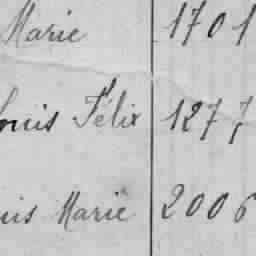 Marie 1701
ouis Félix 1277
uis Marie 2006